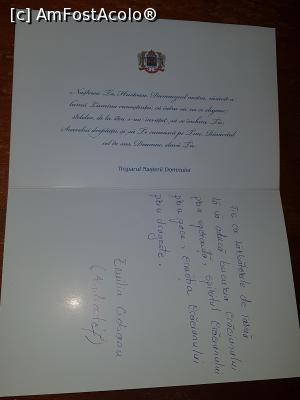 [c] AmFostAcolo®
Nașterea Ta, Hristoase, Dumnezeul nostru, răsărit-a
lumii Lumina cunoștinței; că întru ea, cei ce slujeau
stelelor, de la stea s-au învățat, să se închine Ție,
Soarelui dreptății, și să Te cunoască pe Tine, Răsăritul
cel de sus, Doamne, slavă Ție.
Troparul Nașterii Domnului
Fie ca sărbătorile de iarnă
să vă aducă bucuria Crăciunului
prin speranță, spiritul Crăciunului
prin pace, emoția Crăciunului
prin dragoste.
Emilia